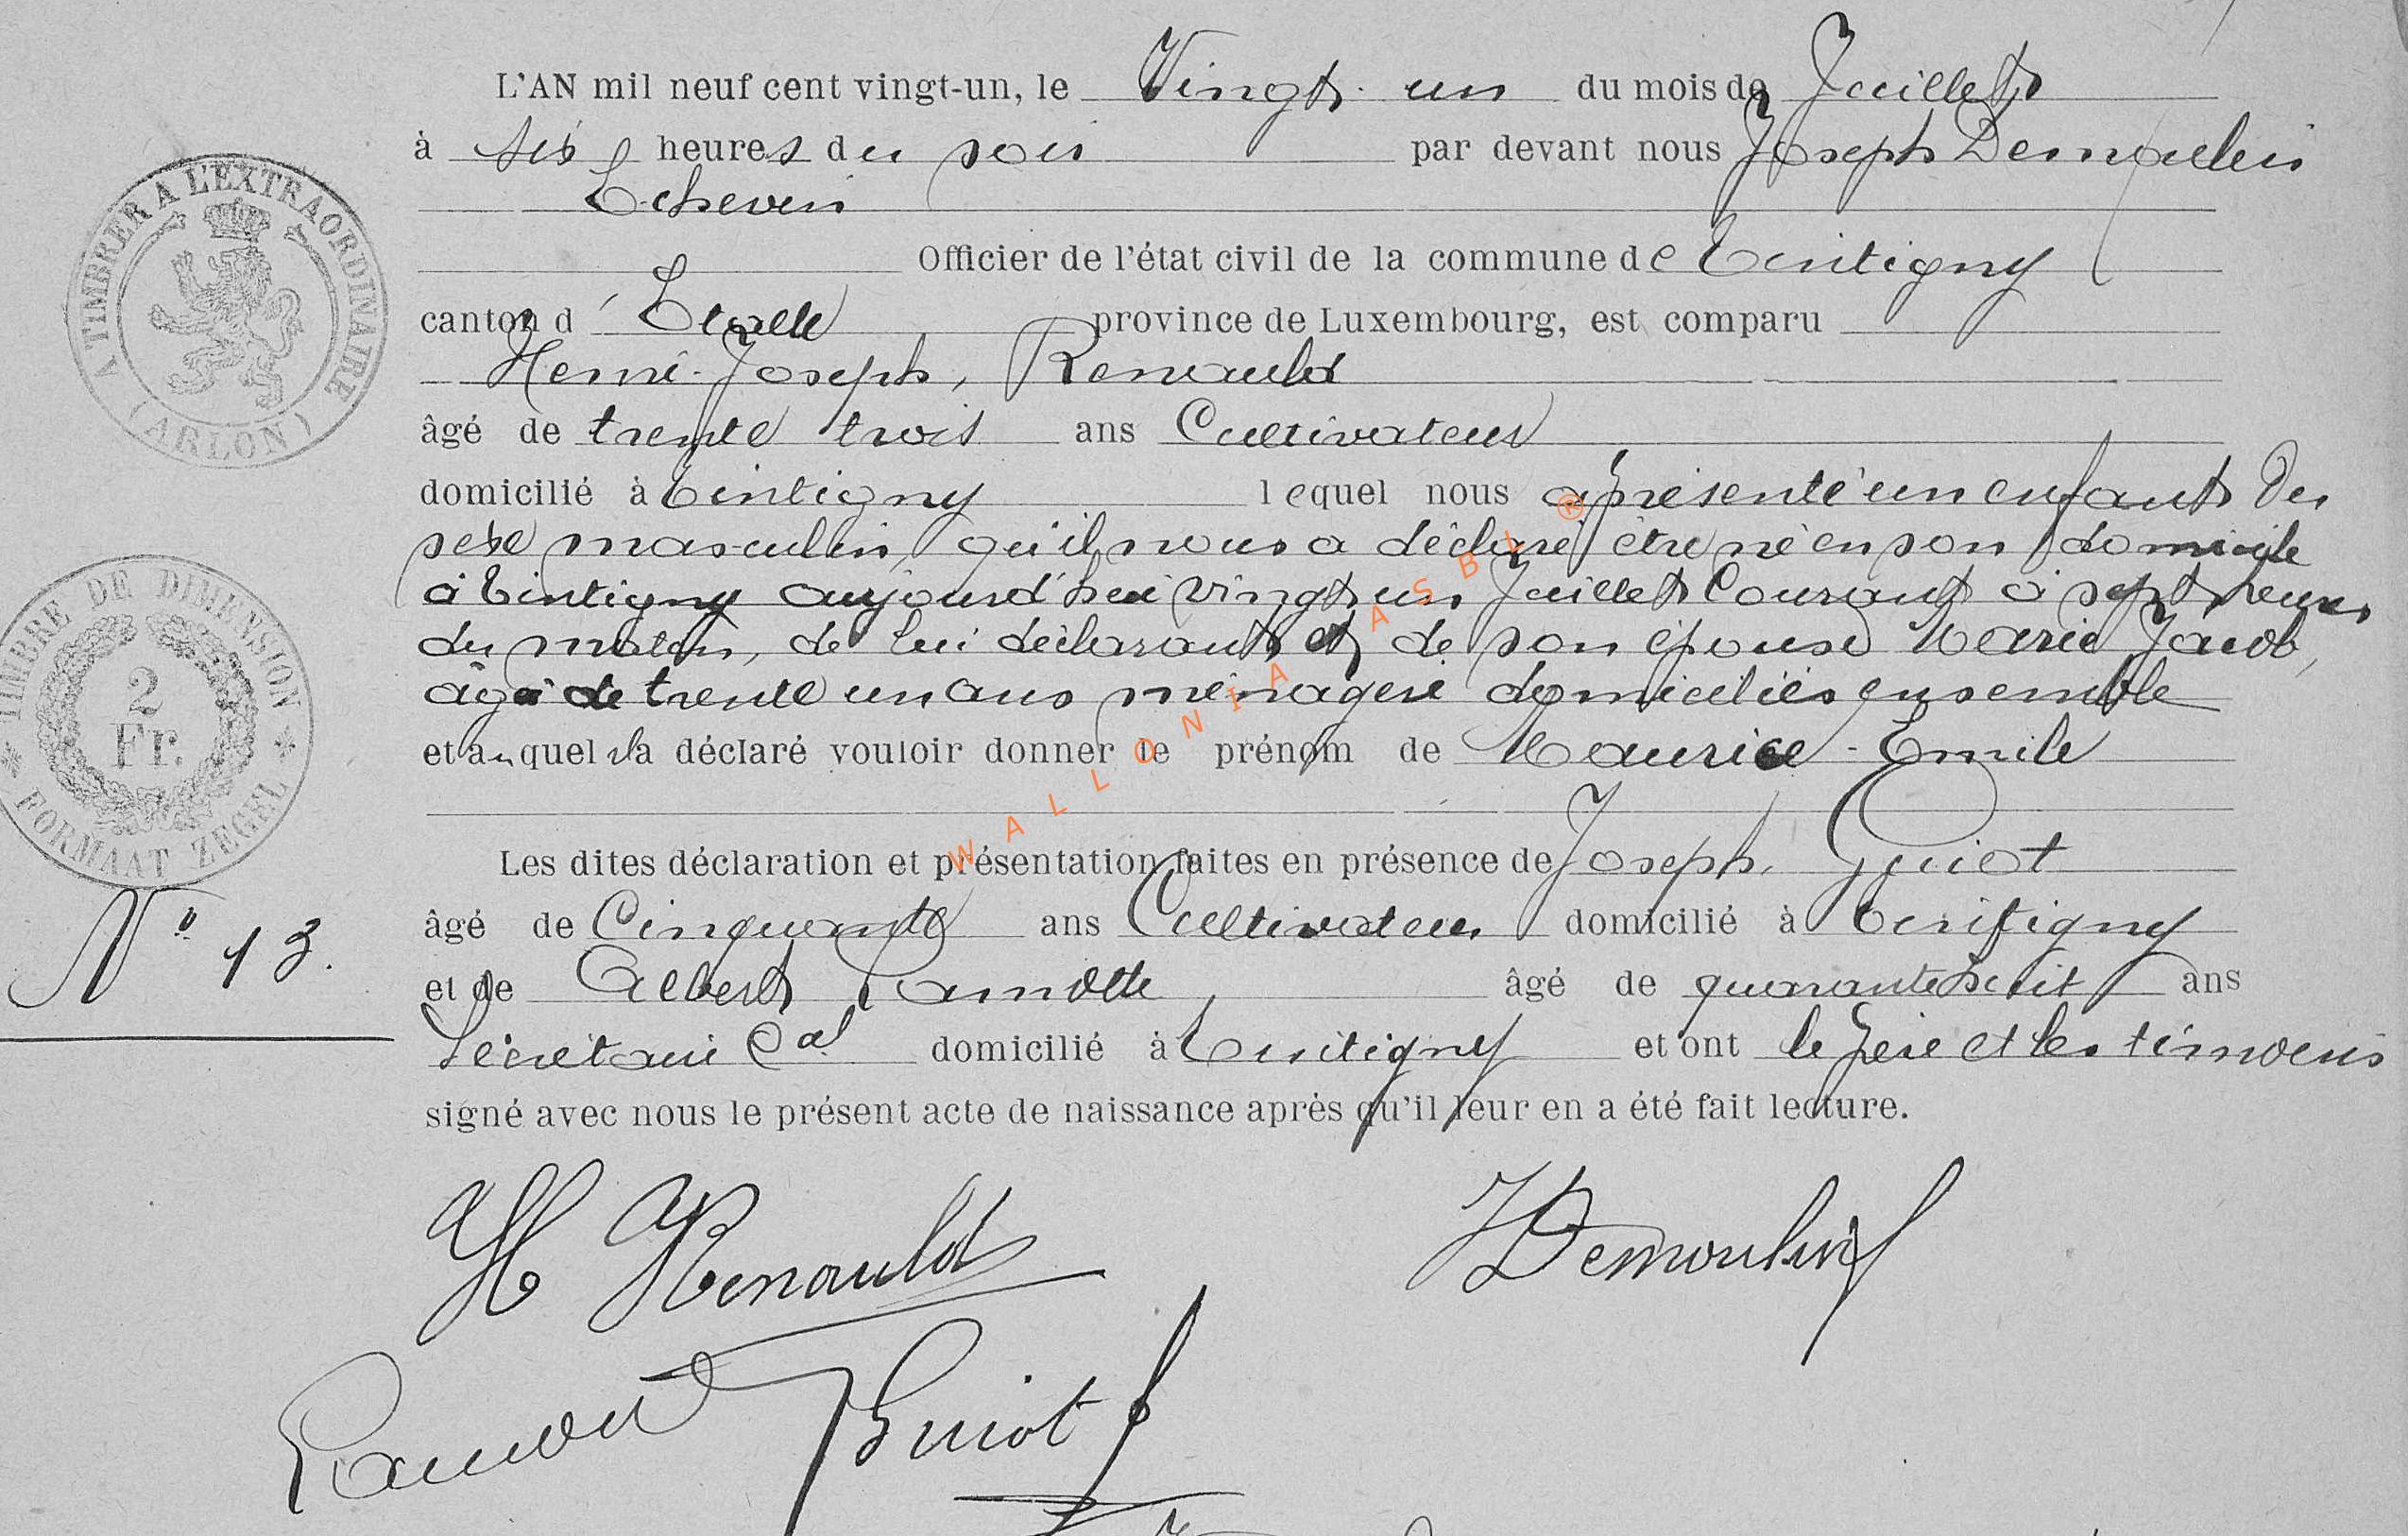 L'AN mil neuf cent vingt-un, le Vingt-un du mois de Juillet
à six heures du soir par devant nous Joseph Demoulin
Echevin
Officier de l'état civil de la commune de Tintigny
canton d'Etalle province de Luxembourg, est comparu
Henri-Joseph, Renauld
âgé de trente trois ans Cultivateur
domicilié à Tintigny lequel nous a présenté un enfant du
sexe masculin, qu'il nous a déclaré être né en son domicile
à Tintigny aujourd'hui vingt un Juillet Courant à sept heures
du matin, de lui déclarant et de son épouse Marie Jacob,
âgée de trente un ans ménagère domiciliés ensemble
et auquel il a déclaré vouloir donner le prénom de Maurice-Emile
Les dites déclaration et présentation faites en présence de Joseph Guiot
âgé de Cinquante ans Cultivateur domicilié à Tintigny
et de Albert Lamotte, âgé de quarante huit ans
Secrétaire Cal domicilié à Tintigny et ont le père et les témoins
signé avec nous le présent acte de naissance après qu'il leur en a été fait lecture.
H Renauld
J Demoulin
Guiot
A TIMBRER A L'EXTRAORDINAIRE
(ARLON)
TIMBRE DE DIMENSION
2
Fr.
* FORMAAT ZEGEL *
N° 13.
WALLONIA ASBL ®